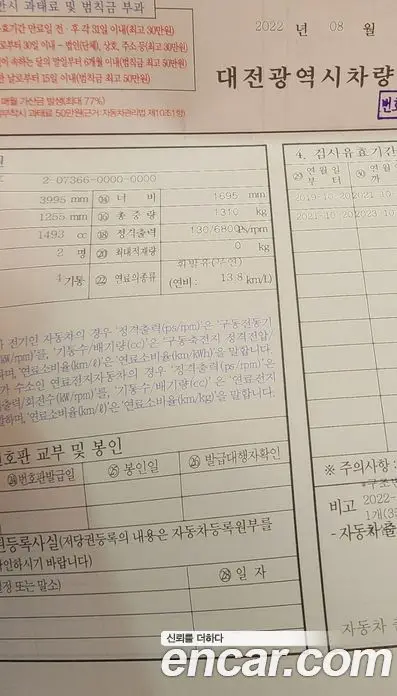 반시 과태료 및 범칙금 부과
기간만료일 전·후 각 31일 이내(최고 30만원)
부터 30일 이내 - 법인(단체), 상호, 주소 등(최고 30만원)
이 속하는 달의 말일부터 6개월 이내(범칙금 최고 50만원)
날로부터 15일 이내(범칙금 최고 50만원)
매월 가산금 발생(최대 77%)
부착시 과태료 50만원(근거:자동차관리법 제10조1항)
2022 년 08 월
대전광역시차량
번호
2-07366-0000-0000
3995 mm ⑭ 너 비 1695 mm
1255 mm ⑯ 총 중 량 1310 kg
1493 cc ⑱ 정격출력 130/6800 Ps/rpm
2 명 ⑳ 최대적재량 0 kg
4 기통 ㉒ 연료의종류 휘발유(무연)
(연비: 13.8 km/L)
4. 검사유효기간
㉙ 연월일 부 터 ㉚ 연월 까
2019-10-20 2021-10
2021-10-20 2023-10
전기인 자동차의 경우 '정격출력(ps/rpm)'은 '구동전동기
(kW/rpm)'를, '기통수/배기량(cc)'은 '구동축전지 정격전압/
하며, '연료소비율(km/ℓ)'은 '연료소비율(km/kWh)'을 말합니다.
가 수소인 연료전지자동차의 경우 '정격출력(ps/rpm)'은
출력/회전수(kW/rpm)'를, '기통수/배기량(cc)'은 '연료전지
말하며, '연료소비율(km/ℓ)'은 '연료소비율(km/kg)'을 말합니다.
번호판 교부 및 봉인
㉔ 번호판발급일 ㉕ 봉인일 ㉖ 발급대행자확인
권등록사실(저당권등록의 내용은 자동차등록원부를
확인하시기 바랍니다)
설정 또는 말소) ㉘ 일 자
※ 주의사항 :
비고
2022-
1개(3
-자동차 출
자동차
신뢰를 더하다
encar.com